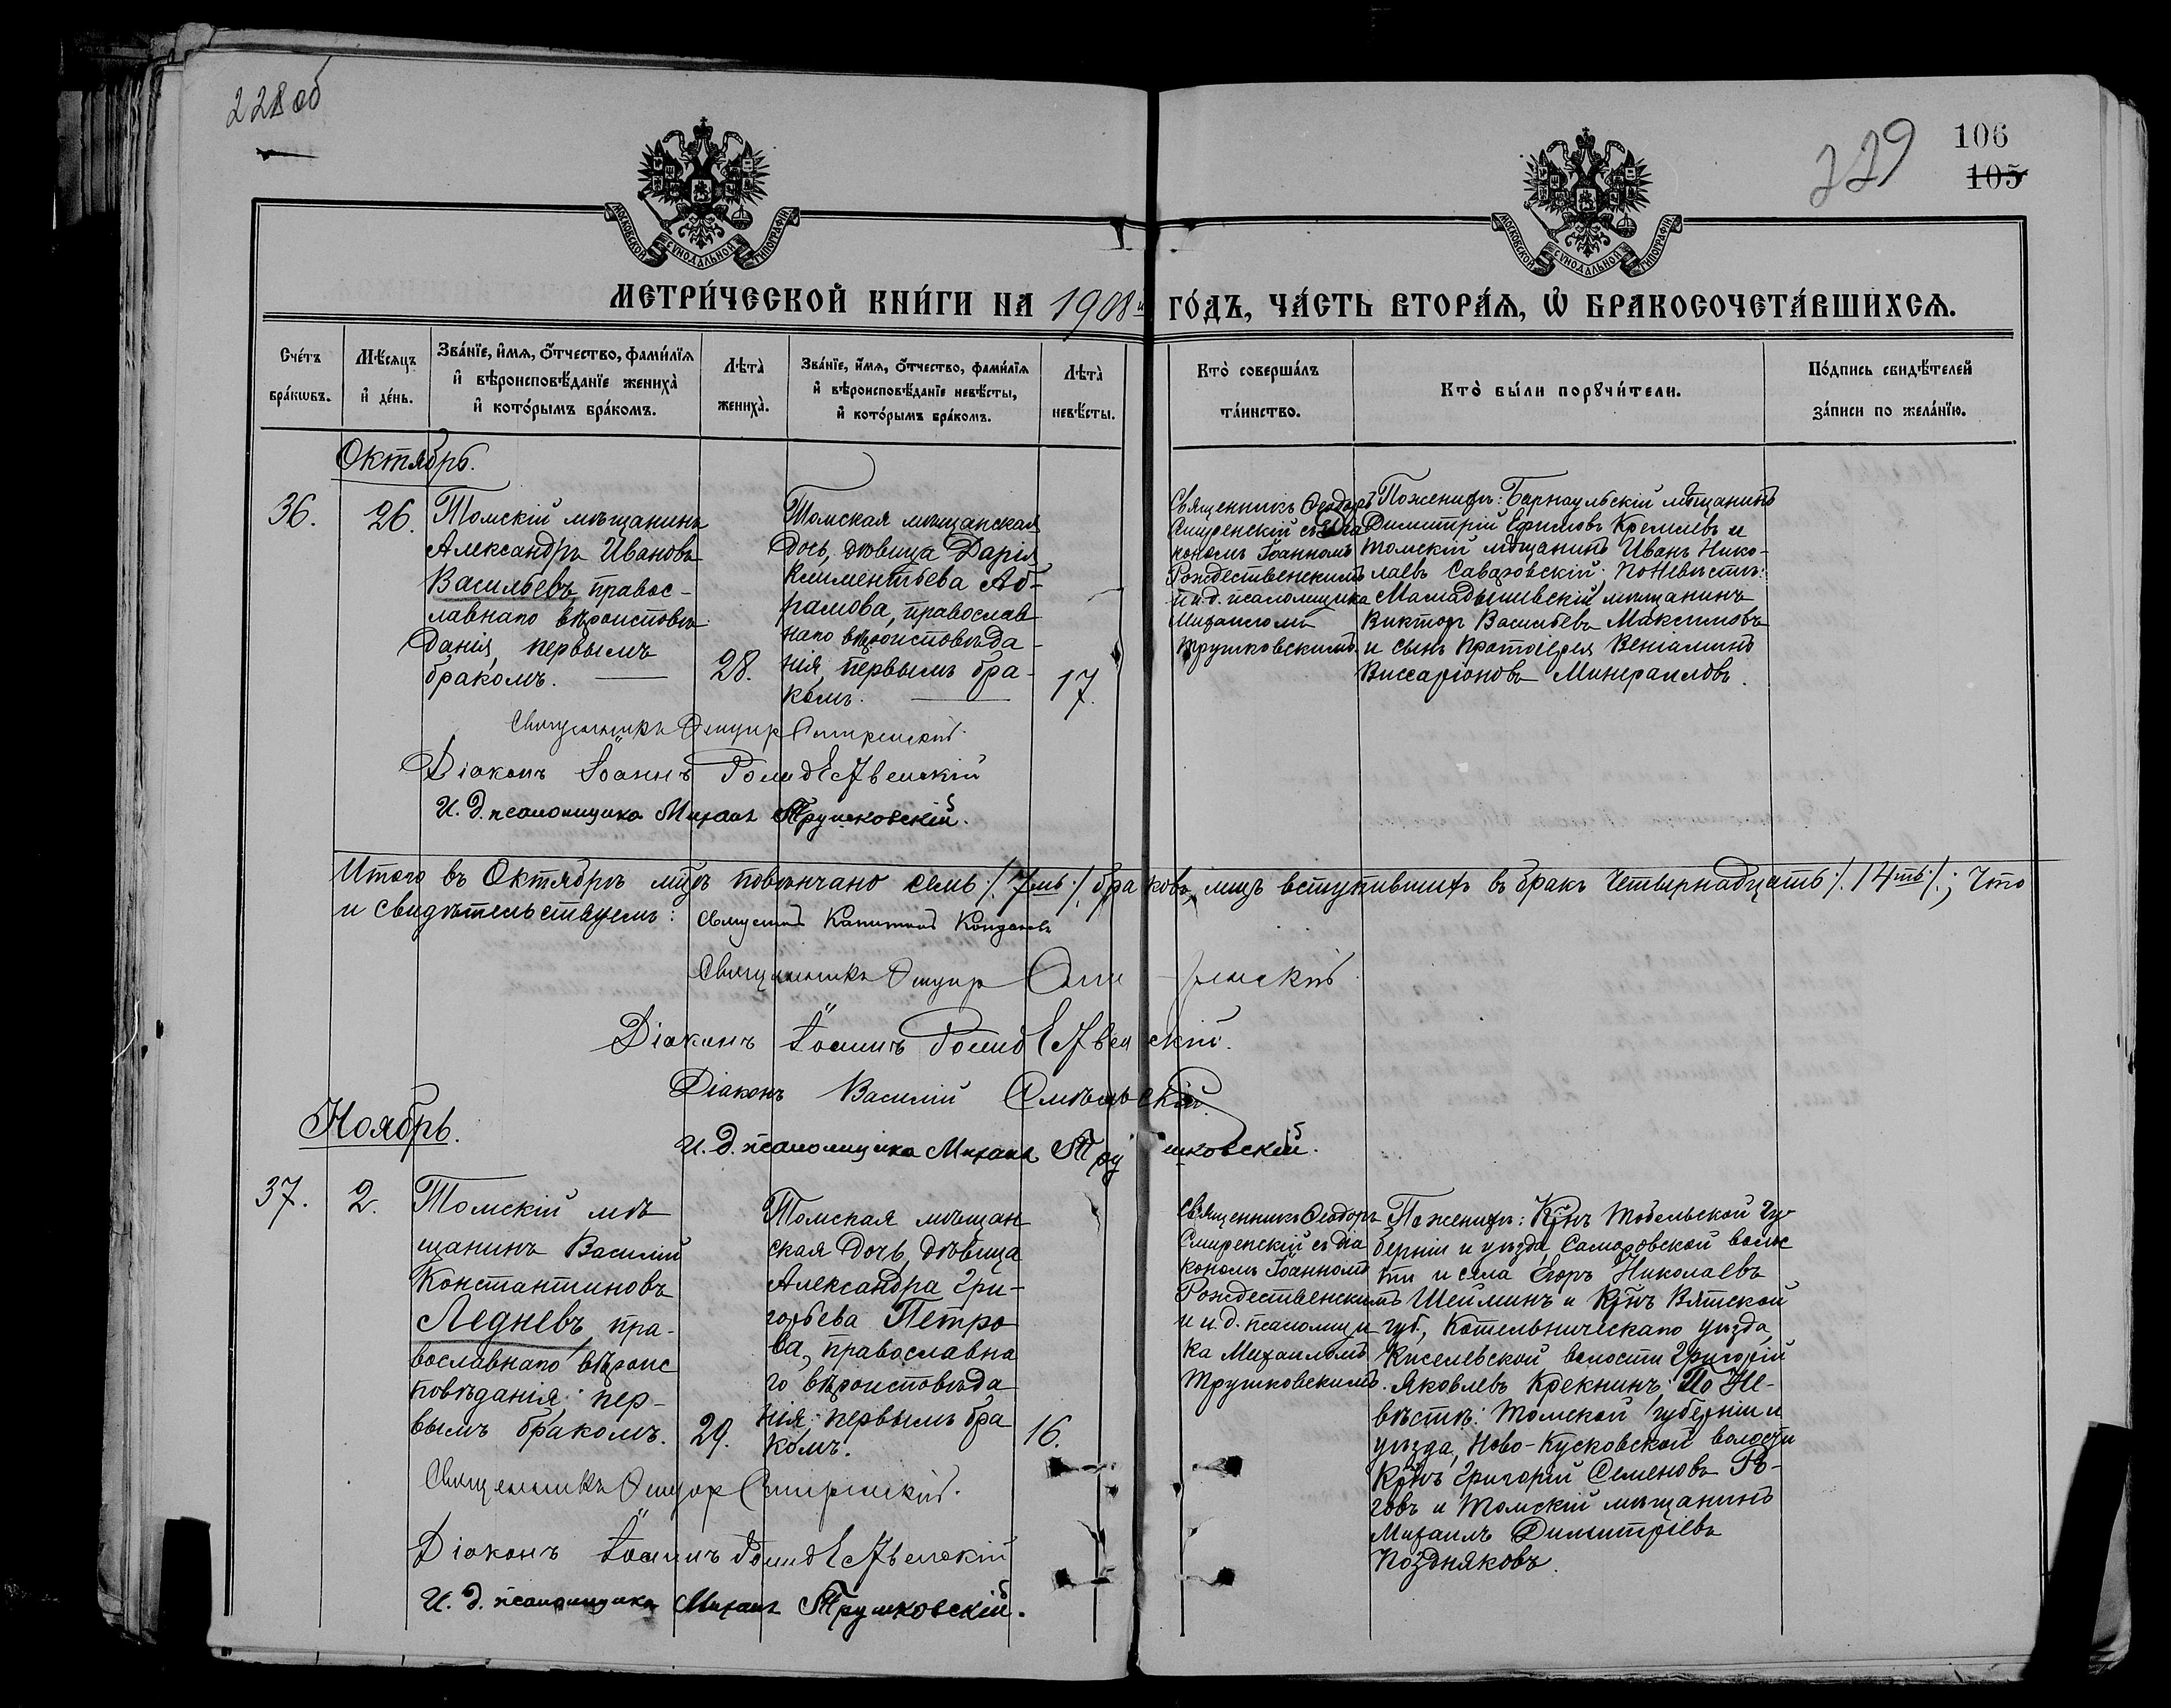 228 об
229
106
105
МОСКОВСКОЙ СѴНОДАЛЬНОЙ ТИПОГРАФІИ
МОСКОВСКОЙ СѴНОДАЛЬНОЙ ТИПОГРАФІИ
МЕТРИ́ЧЕСКОЙ КНИ́ГИ НА 1908й ГО́ДЪ, ЧА́СТЬ ВТОРА́Я, Ѡ҆ БРАКОСОЧЕТА́ВШИХСѦ.
Сче́тъ
бра́кѡвъ.
Мѣ́сяцъ
и҆ де́нь.
Зва́нїе, и҆́мѧ, о҆́тчество, фами́лїѧ
и҆ вѣроисповѣ́данїе жениха̀
и҆ кото́рымъ бра́комъ.
Лѣта̀
жениха̀.
Зва́нїе, и҆́мѧ, о҆́тчество, фами́лїѧ
и҆ вѣроисповѣ́данїе невѣ́сты,
и҆ кото́рымъ бра́комъ.
Лѣта̀
невѣ́сты.
Кто̀ соверша́лъ
та́инство.
Кто̀ бы́ли порꙋчи́тели.
По́дпись свидѣ́телей
за́писи по жела́нїю.
Октябрь.
36.
26.
Томскій мѣщанинъ
Александръ Ивановъ
Васильевъ, правос-
лавнаго вѣроисповѣ-
данія, первымъ
бракомъ.
28.
Томская мѣщанская
дочь, дѣвица Дарія
Климентьева Аб-
рамова, православ
наго вѣроисповѣда-
нія, первымъ бра-
комъ.
17.
Священникъ Ѳеодоръ
Смиренскій съ діа
кономъ Іоанномъ
Рождественскимъ
и и. д. псаломщика
Михаиломъ
Трушковскимъ.
По женихѣ: Барнаульскій мѣщанинъ
Димитрій Ефимовъ Кремлевъ и
томскій мѣщанинъ Иванъ Нико-
лаевъ Саваровскій; по невѣстѣ:
Мамадышевскій мѣщанинъ
Викторъ Васильевъ Максимовъ
и сынъ протоіерея Веніаминъ
Виссаріоновъ Минераловъ.
Священникъ Ѳеодоръ Смиренскій.
Діаконъ Іоаннъ Рождественскій
И. д. псаломщика Михаилъ Трушковскій.
Итого въ Октябрѣ мцѣ повѣнчано семь /.7мь./ браковъ, лицъ вступившихъ въ бракъ четырнадцать /.14ть./; что
и свидѣтельствуемъ: Священникъ Капитонъ Кондаковъ
Священникъ Ѳеодоръ Смиренскій.
Діаконъ Іоаннъ Рождественскій.
Діаконъ Василій Смѣльскій.
И. д. псаломщика Михаилъ Трушковскій.
Ноябрь.
37.
2.
Томскій мѣ
щанинъ Василій
Константиновъ
Ледневъ, пра-
вославнаго вѣроис
повѣданія; пер-
вымъ бракомъ.
29.
Томская мѣщан
ская дочь, дѣвица
Александра Гри-
горьева Петро
ва, православна
го вѣроисповѣда
нія: первымъ бра
комъ.
16.
Священникъ Ѳеодоръ
Смиренскій съ діа
кономъ Іоанномъ
Рождественскимъ
и и. д. псаломщи
ка Михаиломъ
Трушковскимъ.
По женихѣ: Крнъ Тобольской гу-
берніи и уѣзда, Самаровской волос
ти и села Егоръ Николаевъ
Шейминъ и Крнъ Вятской
губ., Котельническаго уѣзда,
Киселевской волости Григорій
Яковлевъ Крекнинъ; По Не-
вѣстѣ: Томской губерніи и
уѣзда, Ново-Кусковской волости
Крнъ Григорій Семеновъ Рѣ-
говъ и Томскій мѣщанинъ
Михаилъ Димитріевъ
Поздняковъ.
Священникъ Ѳеодоръ Смиренскій.
Діаконъ Іоаннъ Рождественскій
И. д. псаломщика Михаилъ Трушковскій.